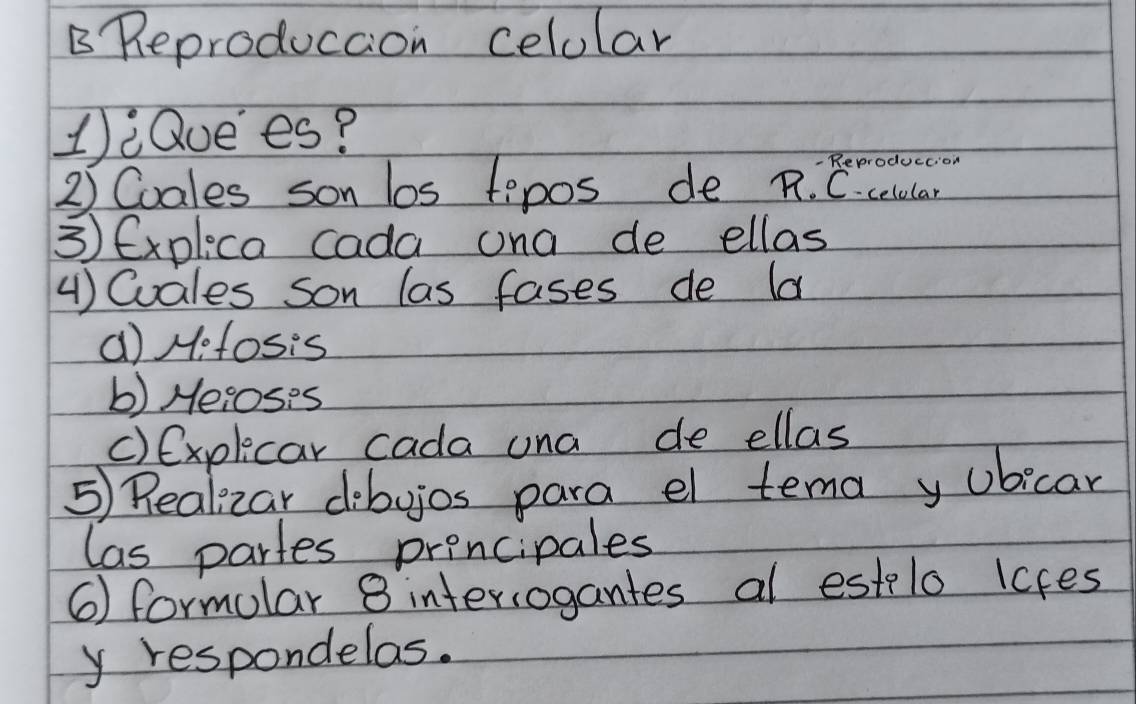 B Reproduccion celular
1) ¿Que es?
2) Cuales son los tipos de R.C - Reproduccion - celular
3) Explica cada una de ellas
4) Cuales son las fases de la
a) Mitosis
b) Meiosis
c) Explicar cada una de ellas
5) Realizar dibujos para el tema y Ubicar
las partes principales
6) formular 8 interrogantes al estilo Icfes
y respondelas.